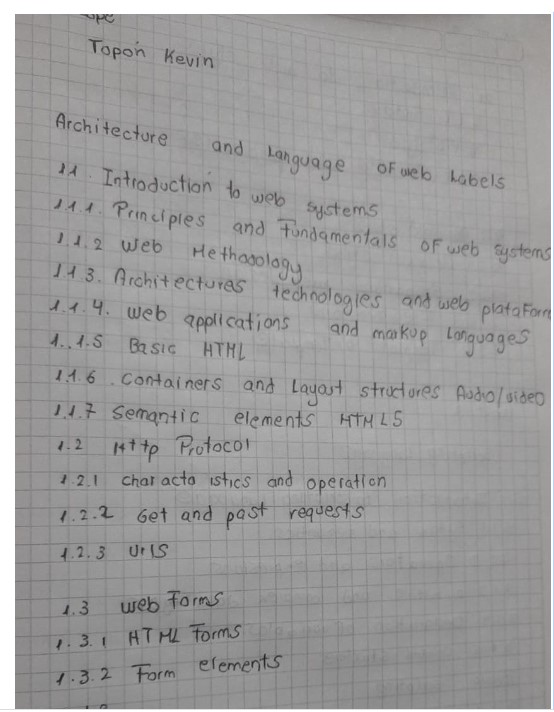 Topon Kevin
Architecture and Language of web Labels
1.1. Introduction to web systems
1.1.1. Principles and Fundamentals of web systems
1.1.2 Web Methodology
1.1.3. Architectures technologies and web plataForm
1.1.4. web applications and markup languages
1.1.5 Basic HTML
1.1.6. Containers and Layout structures Audio/video
1.1.7 Semantic elements HTML5
1.2 Http Protocol
1.2.1 characta istics and operation
1.2.2 Get and past requests
1.2.3 Urls
1.3 web Forms
1.3.1 HTML Forms
1.3.2 Form elements